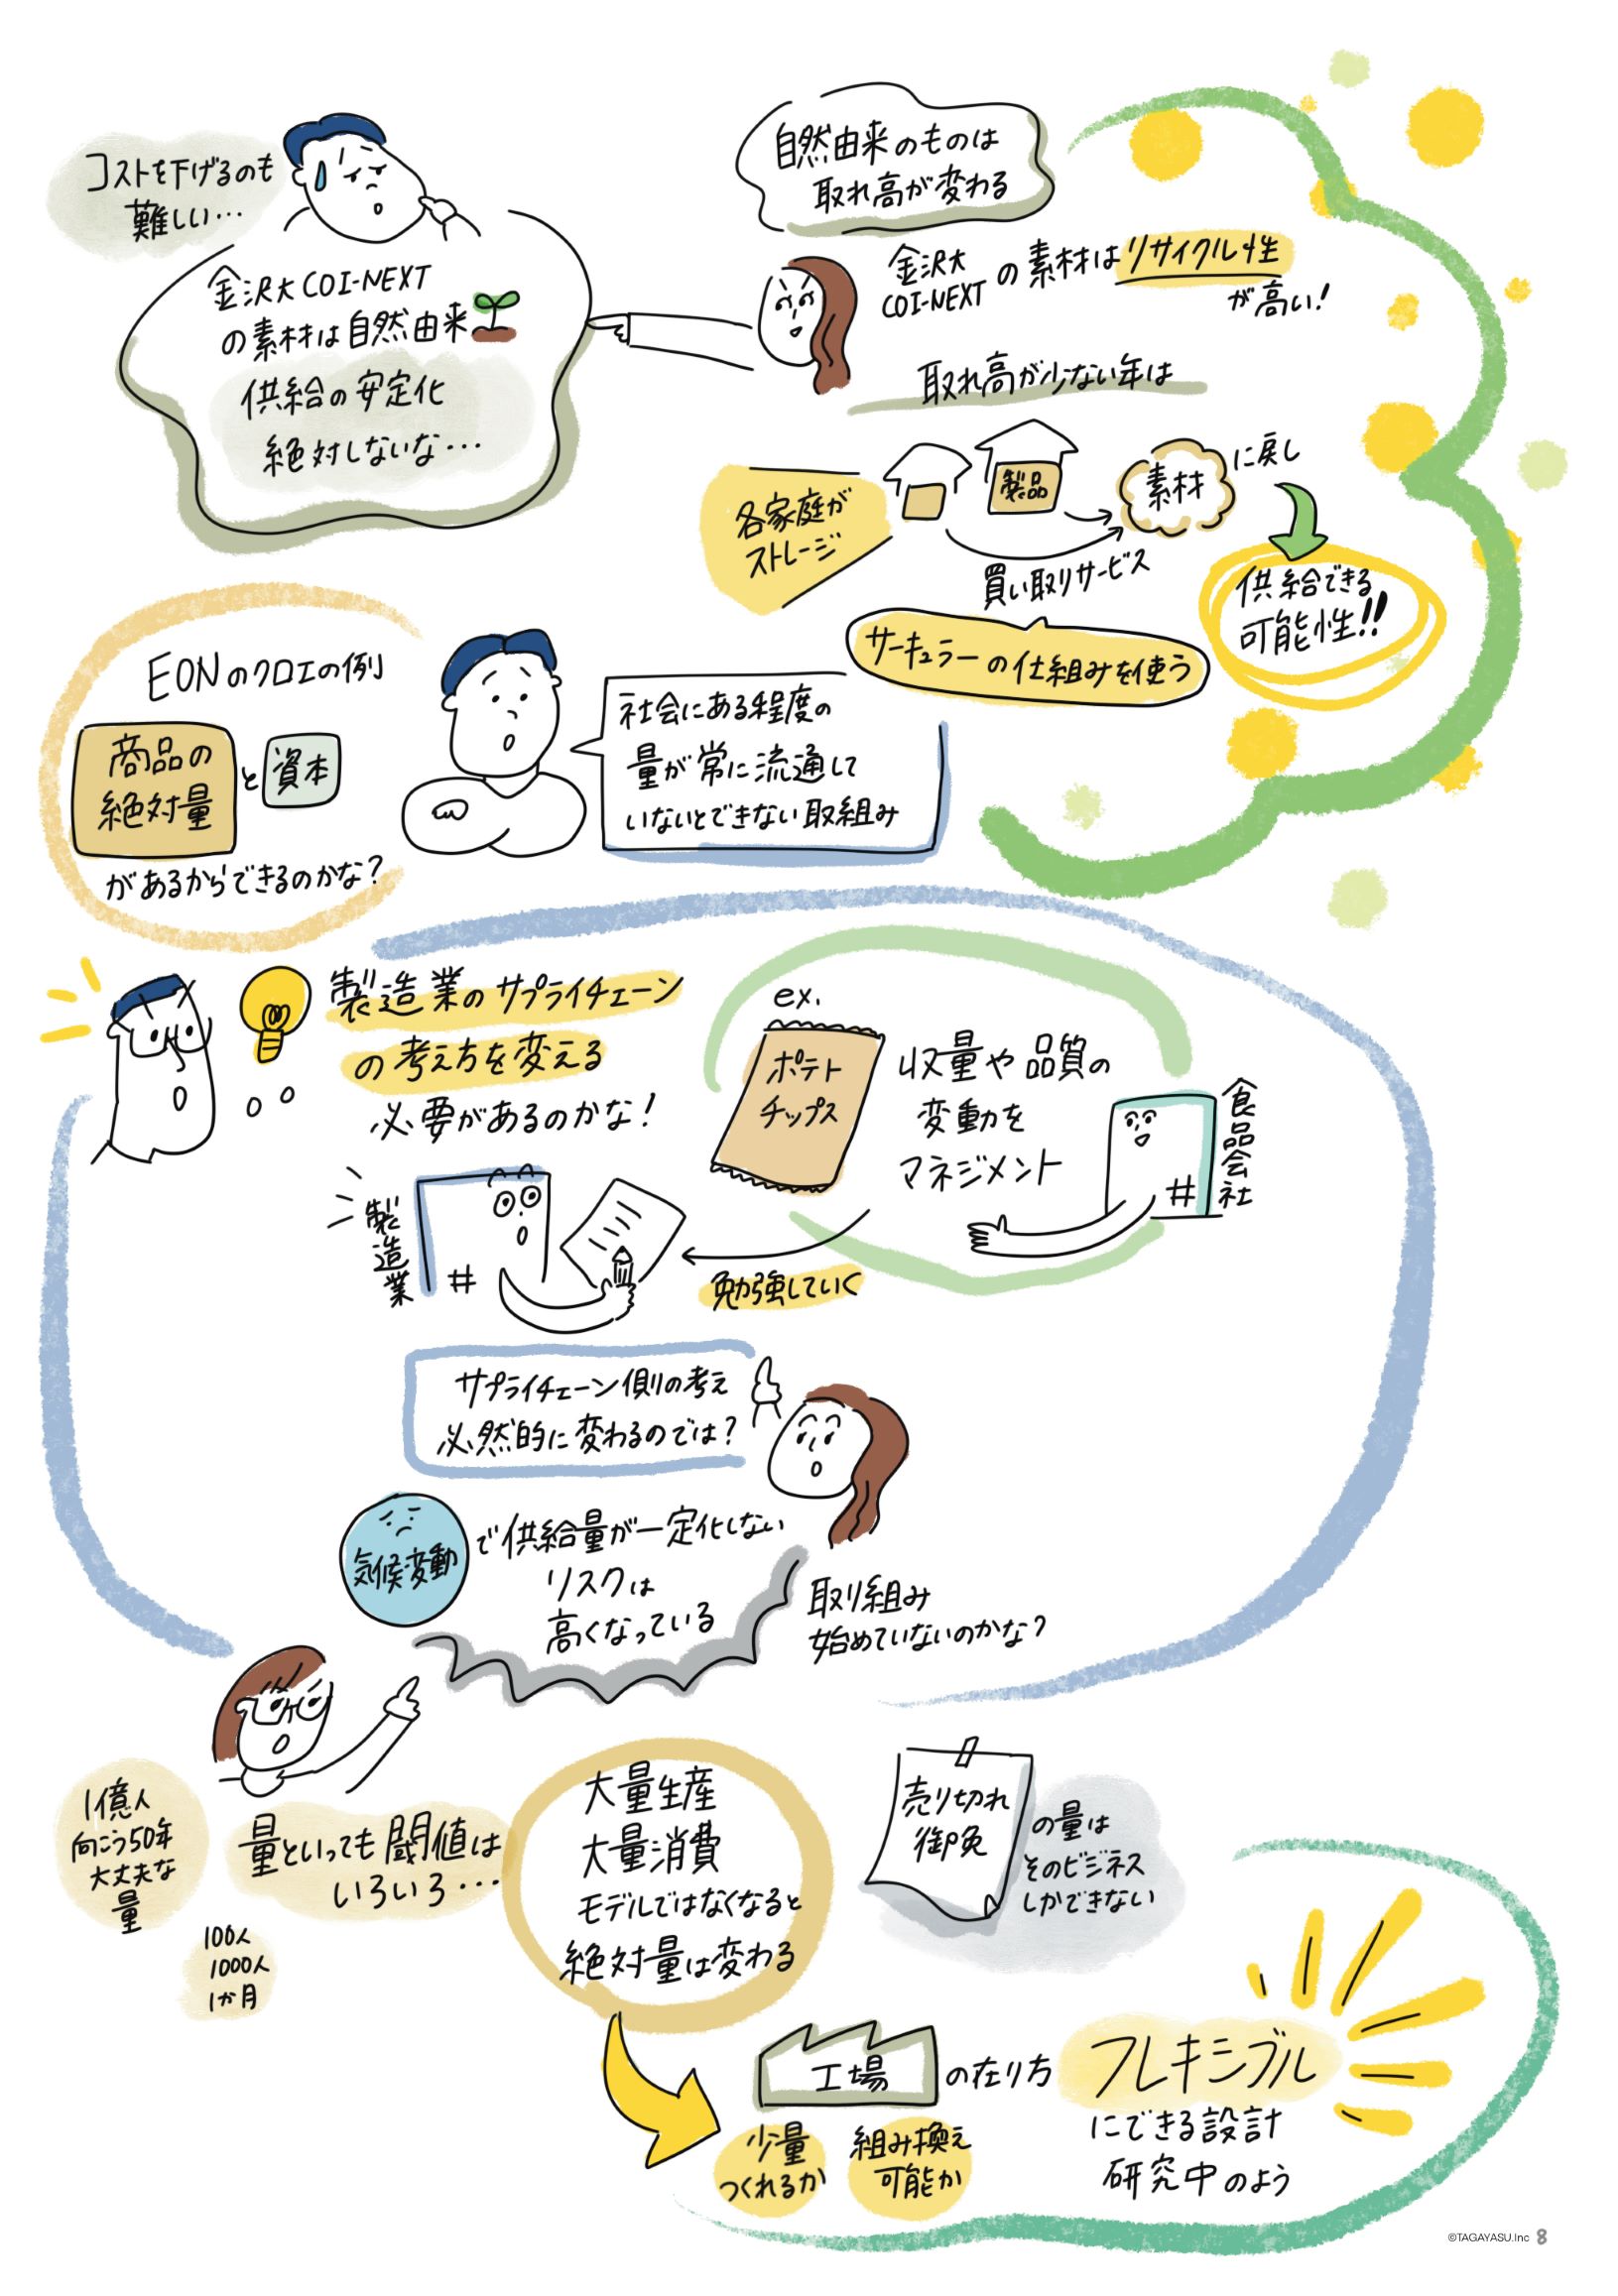 コストを下げるのも
難しい…
金沢大COI-NEXT
の素材は自然由来
供給の安定化
絶対しないな…
自然由来のものは
取れ高が変わる
金沢大
COI-NEXTの素材はリサイクル性
が高い!
取れ高が少ない年は
各家庭が
ストレージ
製品
素材
に戻し
買い取りサービス
サーキュラーの仕組みを使う
供給できる
可能性!!
EONのクロエの例
商品の
絶対量
と
資本
があるからできるのかな?
社会にある程度の
量が常に流通して
いないとできない取組み
製造業のサプライチェーン
の考え方を変える
必要があるのかな!
ex.
ポテト
チップス
収量や品質の
変動を
マネジメント
食品会社
製造業
勉強していく
サプライチェーン側の考え
必然的に変わるのでは?
気候変動
で供給量が一定化しない
リスクは
高くなっている
取り組み
始めていないのかな?
1億人
向こう50年
大丈夫な
量
量といっても閾値は
いろいろ…
100人
1000人
1か月
大量生産
大量消費
モデルではなくなると
絶対量は変わる
売り切れ
御免
の量は
そのビジネス
しかできない
工場
の在り方
フレキシブル
にできる設計
研究中のよう
少量
つくれるか
組み換え
可能か
©TAGAYASU.Inc 8